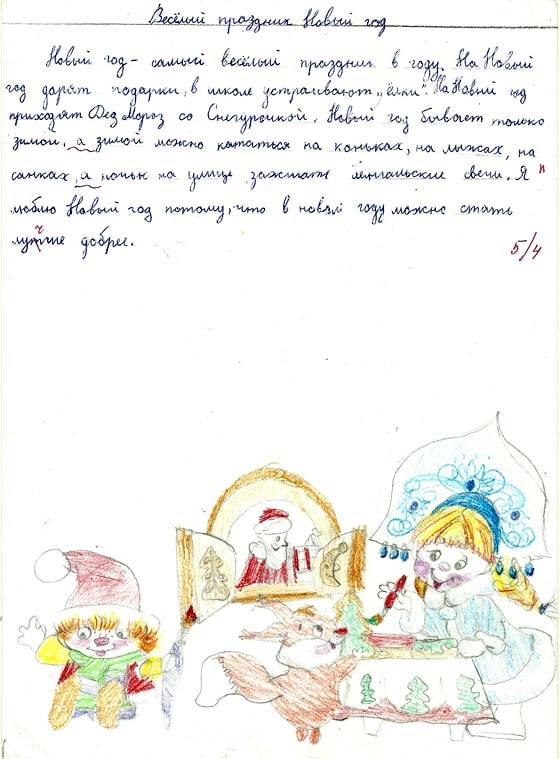 Весёлый праздник Новый год
Новый год - самый весёлый праздник в году. На Новый
год дарят подарки, в школе устраивают „ёлки". На Новый год
приходят Дед Мороз со Снегурочкой. Новый год бывает только
зимой, а зимой можно кататься на коньках, на лыжах, на
санках, а ночью на улице зажигать бенгальские свечи. Я
люблю Новый год потому, что в новом году можно стать
лучше добрее.
5/4